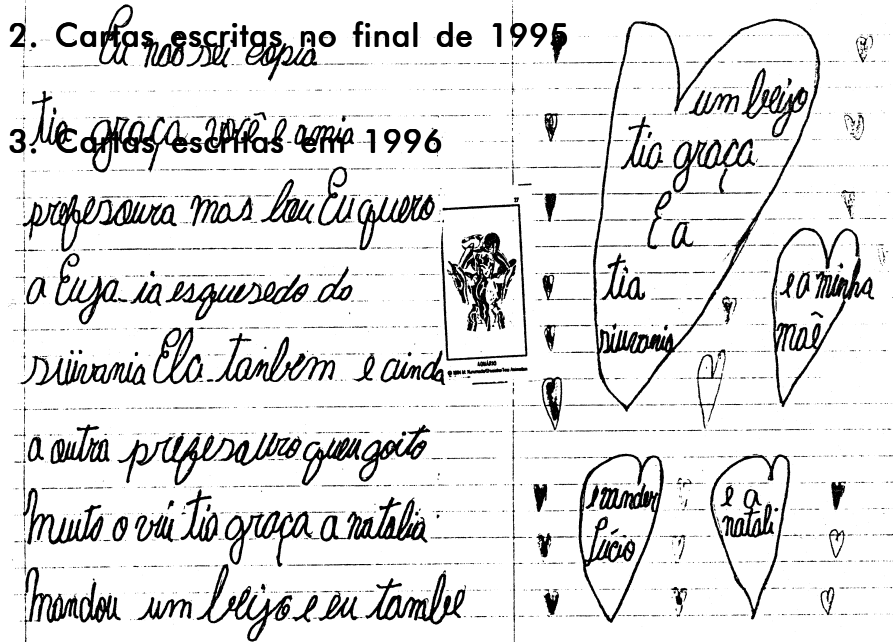 2. Cartas escritas no final de 1995
Eu nao sei copia
tia graça você e a mia
3. Cartas escritas em 1996
profesoura mas lou Eu quero
a Euja ia esquesedo do
siuvania Ela tanbem e ainda
a outra prefesauro quen goito
muito o viu tia graça a natalia
mandou um beijo e eu tambe
AQUÁRIO
um beijo
tia graça
E a
tia
siuvania
e a minha
maê
evander
Lúcio
e a
natali